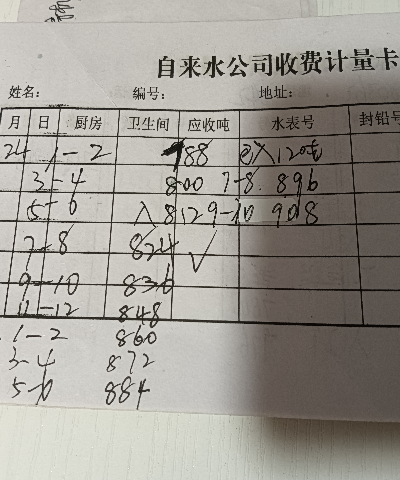 自来水公司收费计量卡
姓名: 编号: 地址:
月 日 厨房 卫生间 应收吨 水表号 封铅号
24 1-2 788 已入12吨
3-4 800 7-8. 896
5-6 入 812 9-10 908
7-8 824 ✓
9-10 836
11-12 848
1-2 860
3-4 872
5-6 884